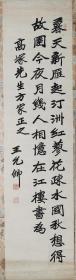 暮天新雁起汀洲紅蓼花疎水國秋想得
故園今夜月幾人相憶在江樓書爲
高塚先生方家正之 王